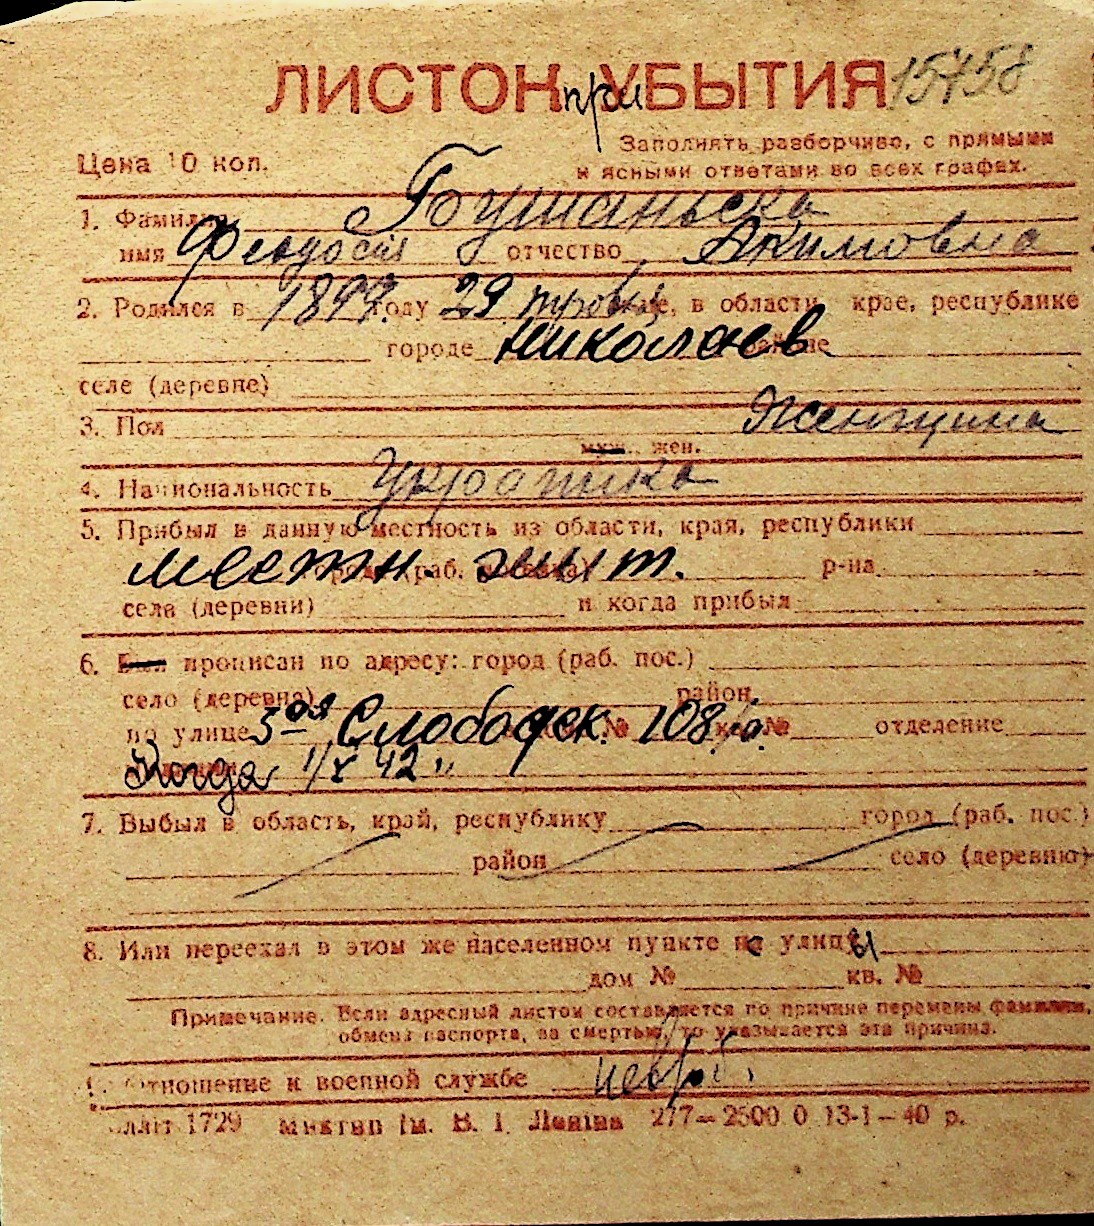 ЛИСТОК при УБЫТИЯ 15758
Цена 10 коп. Заполнять разборчиво, с прямыми
и ясными ответами во всех графах.
1. Фамилия Бушаньска
имя Феодосия отчество Акимовна
2. Родился в 1897 году 29 в области, крае, республике
городе Николаев районе
селе (деревне)
3. Пол Женщина
муж., жен.
4. Национальность Украинка
5. Прибыл в данную местность из области, края, республики
местн. жит. р-на
села (деревни) и когда прибыл
6. Был прописан по адресу: город (раб. пос.)
село (деревня) район,
по улице 5 ая Слободск. № 108 кв. № отделение
Когда 1/X 42 „
7. Выбыл в область, край, республику город (раб. пос.)
район село (деревню)
8. Или переехал в этом же населенном пункте с улицы
дом № кв. №
Примечание. Если адресный листок составляется по причине перемены фамилии,
обмена паспорта, за смертью, то указывается эта причина.
9. Отношение к военной службе невоб.
Обллiт 1729 Миктип Iм. В. I. Ленiна 277—2500 0 13-1-40 р.